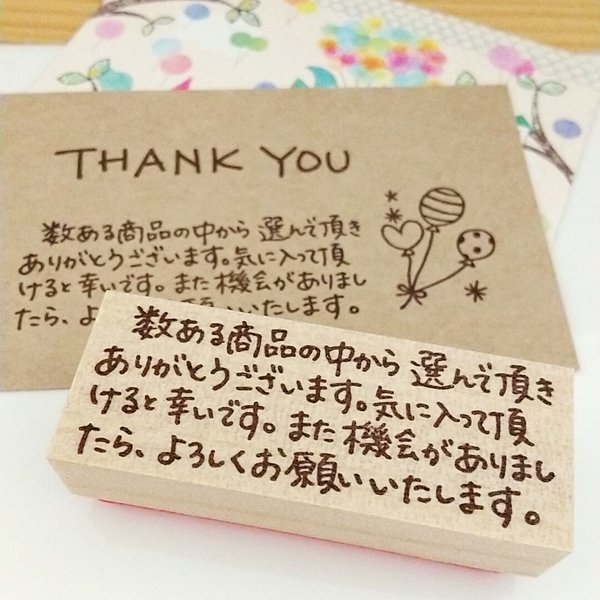 THANK YOU
数ある商品の中から 選んで頂き
ありがとうございます。気に入って頂
けると幸いです。また機会がありまし
たら、よ 願いいたします。
数ある商品の中から 選んで頂き
ありがとうございます。気に入って頂
けると幸いです。また機会がありまし
たら、よろしくお願いいたします。